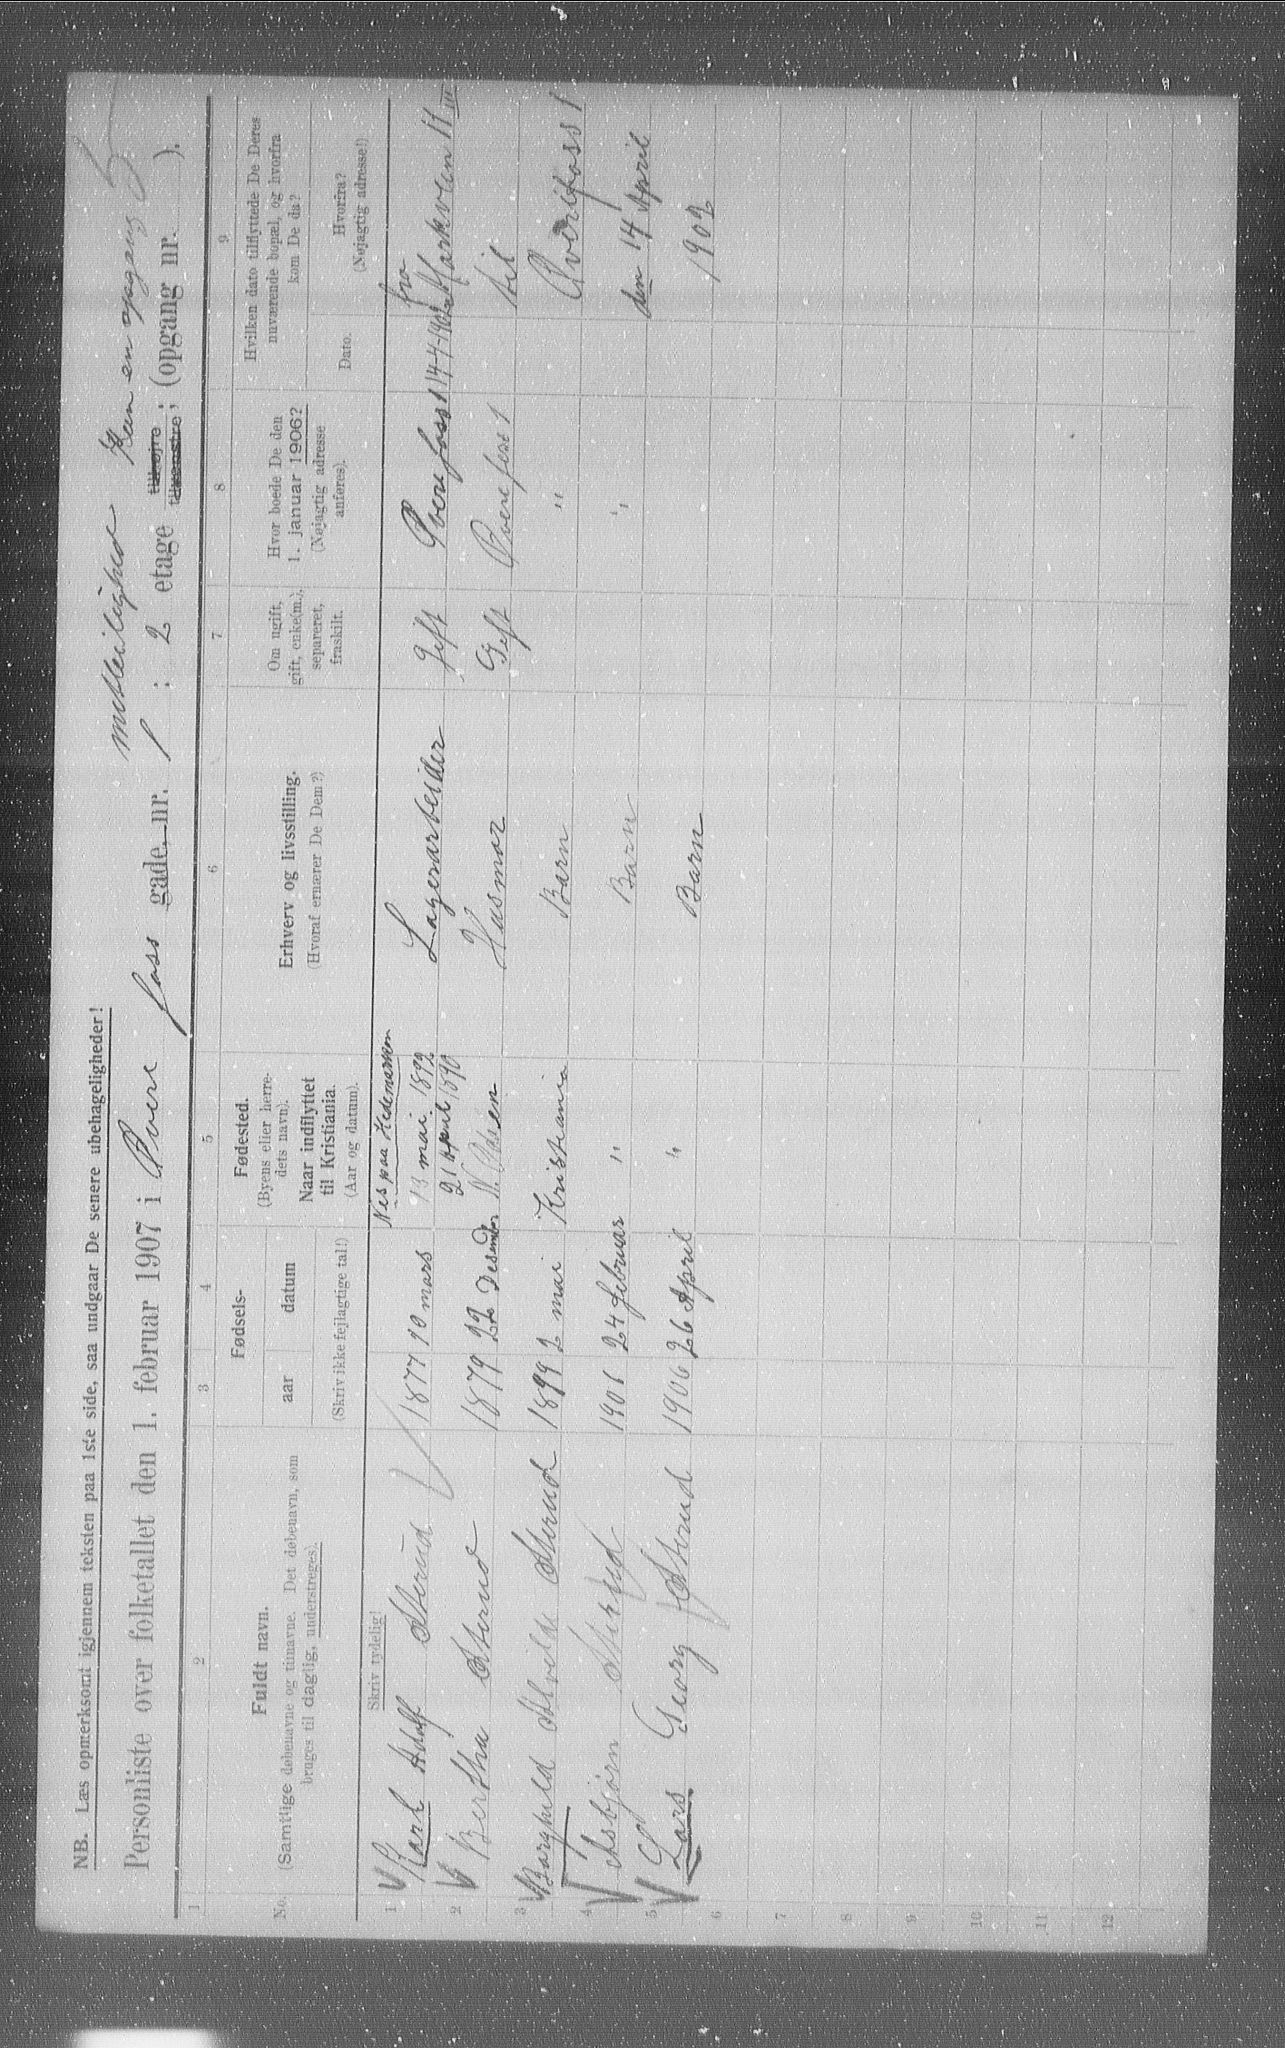 NB. Læs opmerksomt igjennem teksten paa 1ste side, saa undgaar De senere ubehageligheder!
Personliste over folketallet den 1. februar 1907 i Øvre foss gade, nr. 1 : 2 etage til højre til venstre; (opgang nr. ).
Kun en opgang
1 2 3 4 5 6 7 8 9
No.
Fuldt navn.
(Samtlige døbenavne og tilnavne. Det døbenavn, som
bruges til daglig, understreges).
Skriv tydelig!
Fødsels-
aar
datum
(Skriv ikke fejlagtige tal!)
Fødested.
(Byens eller herre-
dets navn).
Naar indflyttet
til Kristiania.
(Aar og datum).
Erhverv og livsstilling.
(Hvoraf ernærer De Dem?)
Om ugift,
gift, enke(m.),
separeret,
fraskilt.
Hvor boede De den
1. januar 1906?
(Nøjagtig adresse
anføres).
Hvilken dato tilflyttede De Deres
nuværende bopæl, og hvorfra
kom De da?
Dato.
Hvorfra?
(Nøjagtig adresse!)
1 Karl Adolf Sterud 1877 10 mars Nes paa Hedemarken 13 mai 1899 Lagerarbeider Gift Øvrefoss 1 14-4-1902 fra Markveien 11 III
2 Bertha Sterud 1879 22 Desember 21 april 1890 Husmor Gift Øvrefoss 1 til
3 Borghild Alvilde Sterud 1899 2 mai Kristiania Barn " Øvrefoss 1
4 Asbjørn Sterud 1901 24 februar " Barn " den 14 April
5 Lars Georg Sterud 1906 26 April " Barn 1902
6
7
8
9
10
11
12